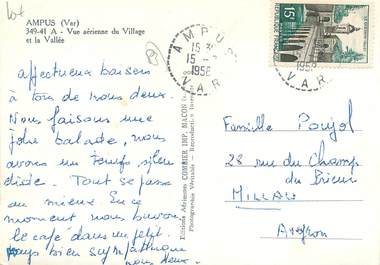 AMPUS (Var)
349-41 A - Vue aérienne du Village
et la Vallée
affectueux baisers
à tous de nous deux.
Nous faisons une
jolie balade, nous
avons un temps splen
dide. Tout se passe
au mieux. En ce
moment nous buvons
le café dans un petit
pays bien sympathique
nous deux.
Editions Aériennes COMBIER IMP. MACON
Photographie Véritable - Reproduction
AMPUS
15
15 -
1958
VAR
15F
Famille Poujol
28 rue du Champ
du Prieur
MILLAU
Aveyron